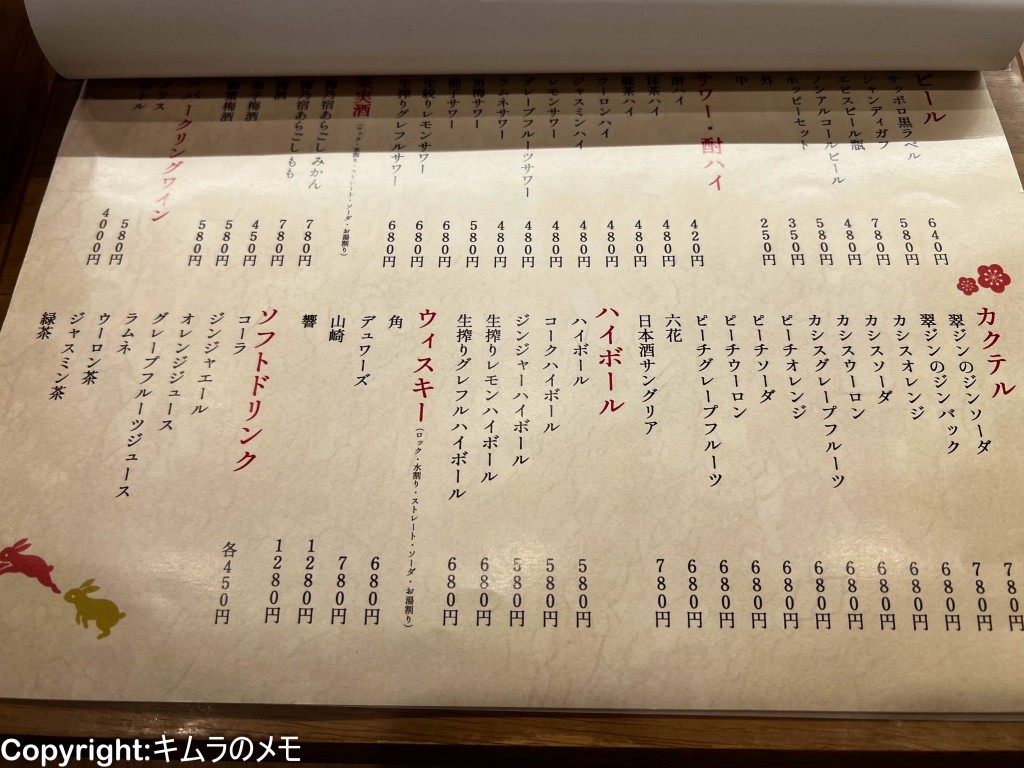 ビール
サッポロ黒ラベル 640円
シャンディガフ 580円
エビスビール瓶 780円
ノンアルコールビール 480円
ホッピーセット 580円
外 350円
中 250円
サワー・酎ハイ
酎ハイ 420円
抹茶ハイ 480円
緑茶ハイ 480円
ウーロンハイ 480円
ジャスミンハイ 480円
レモンサワー 480円
グレープフルーツサワー 480円
ラムネサワー 480円
男梅サワー 580円
柚子サワー 680円
生絞りレモンサワー 680円
生搾りグレフルサワー 680円
果実酒(ロック・水割り・ストレート・ソーダ・お湯割り)
梅乃宿あらごしみかん 780円
梅乃宿あらごしもも 780円
梅酒 450円
梅酒 580円
梅酒 580円
パークリングワイン
グラス 580円
ボトル 4000円
カクテル
翠ジンのジンソーダ 780円
翠ジンのジンバック 780円
カシスオレンジ 680円
カシスソーダ 680円
カシスウーロン 680円
カシスグレープフルーツ 680円
ピーチオレンジ 680円
ピーチソーダ 680円
ピーチウーロン 680円
ピーチグレープフルーツ 680円
六花 680円
日本酒サングリア 780円
ハイボール
ハイボール 580円
コークハイボール 580円
ジンジャーハイボール 580円
生搾りレモンハイボール 680円
生搾りグレフルハイボール 680円
ウィスキー(ロック・水割り・ストレート・ソーダ・お湯割り)
角 680円
デュワーズ 780円
山崎 1280円
響 1280円
ソフトドリンク
コーラ
ジンジャエール 各450円
オレンジジュース
グレープフルーツジュース
ラムネ
ウーロン茶
ジャスミン茶
緑茶
Copyright:キムラのメモ